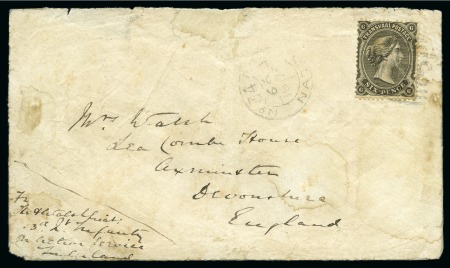 TRANSVAAL POSTAGE
SIX PENCE
Mrs Walsh
Lea Combe House
Axminster
Devonshire
England
13th Lt Infantry
on Active Service
Zululand